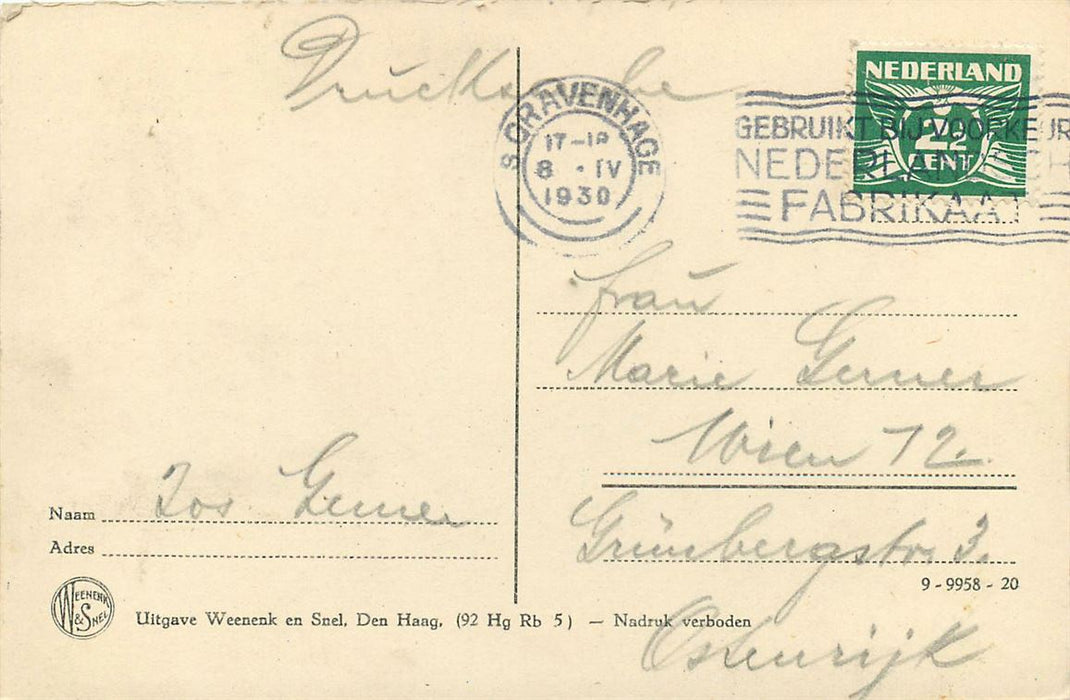 Drucksache
NEDERLAND
2½
CENT
'S GRAVENHAGE
17-18
8 · IV
1930
GEBRUIKT BIJ VOORKEUR
NEDERLANDSCH
FABRIKAAT
Frau
Marie Gerner
Wien 12.
Grünbergstr. 3.
Ostenrijk
Naam Jos Gerner
Adres
9-9958-20
WEENENK
& SNEL
Uitgave Weenenk en Snel, Den Haag, (92 Hg Rb 5) — Nadruk verboden